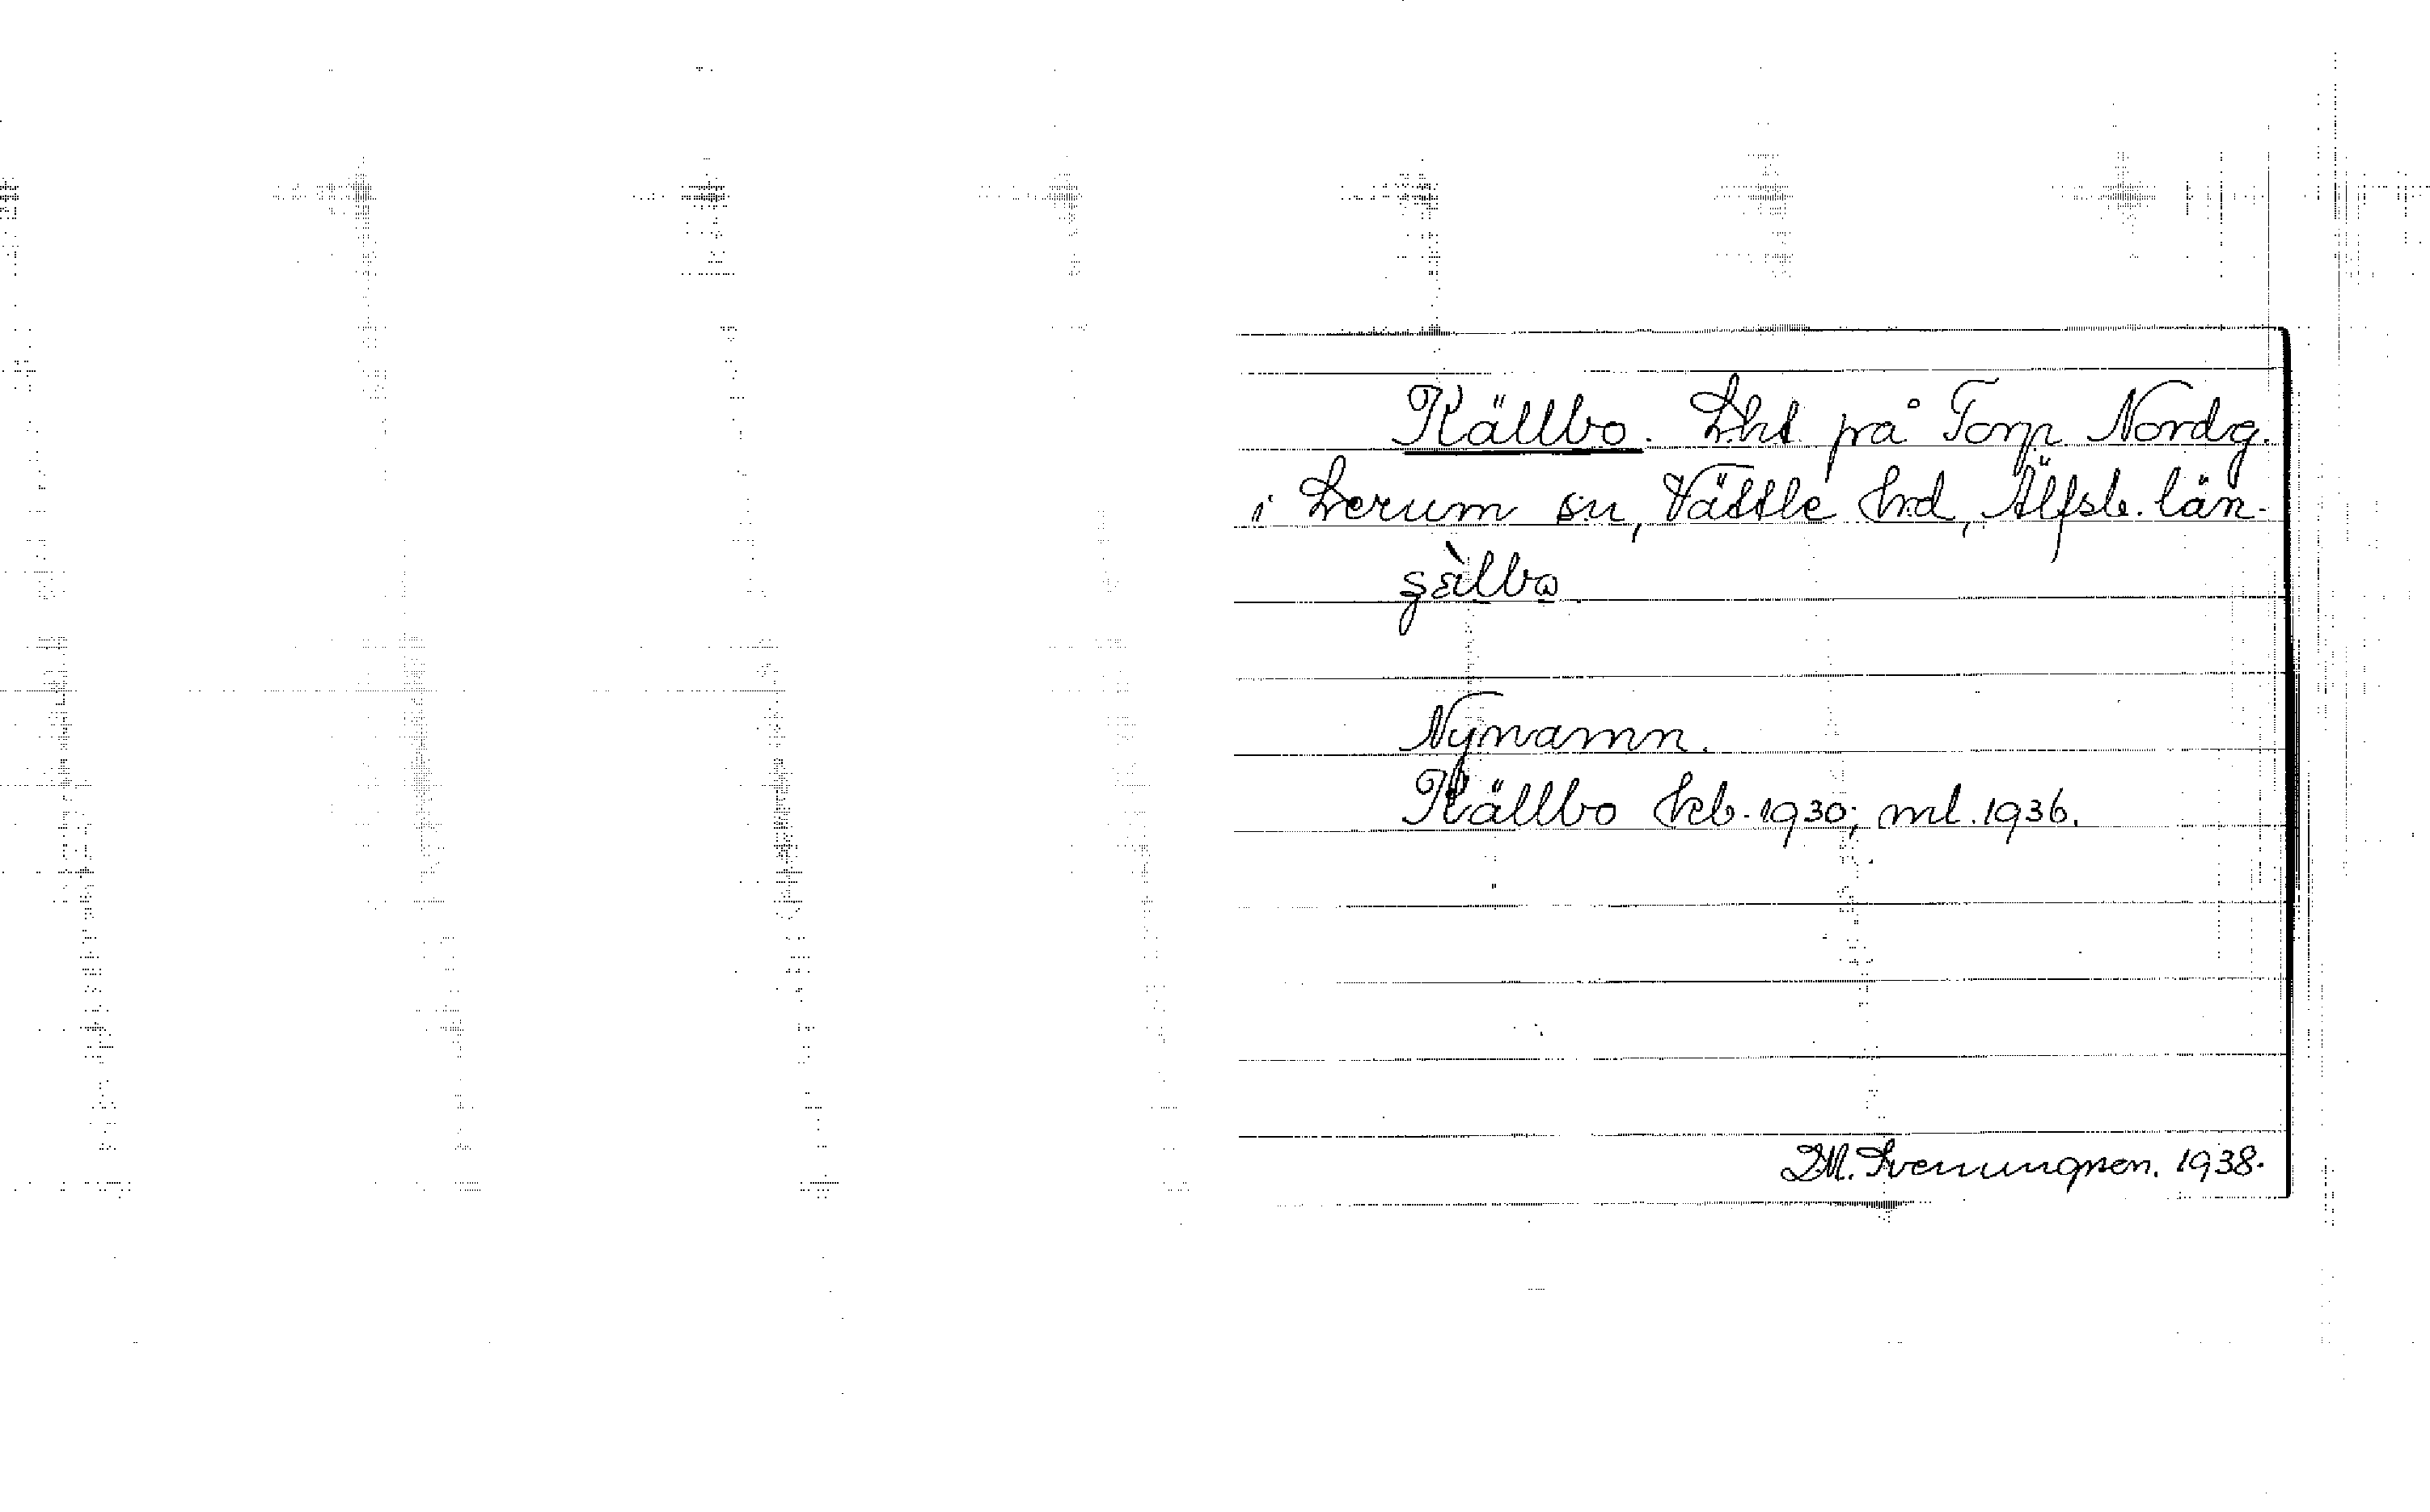 Källbo. Lht. på Torp Nordg.
i Lerum sn, Vättle hd, Älfsb. län.
Nynamn.
Källbo kb. 1930; ml. 1936.
D.M. Svenungsen. 1938.